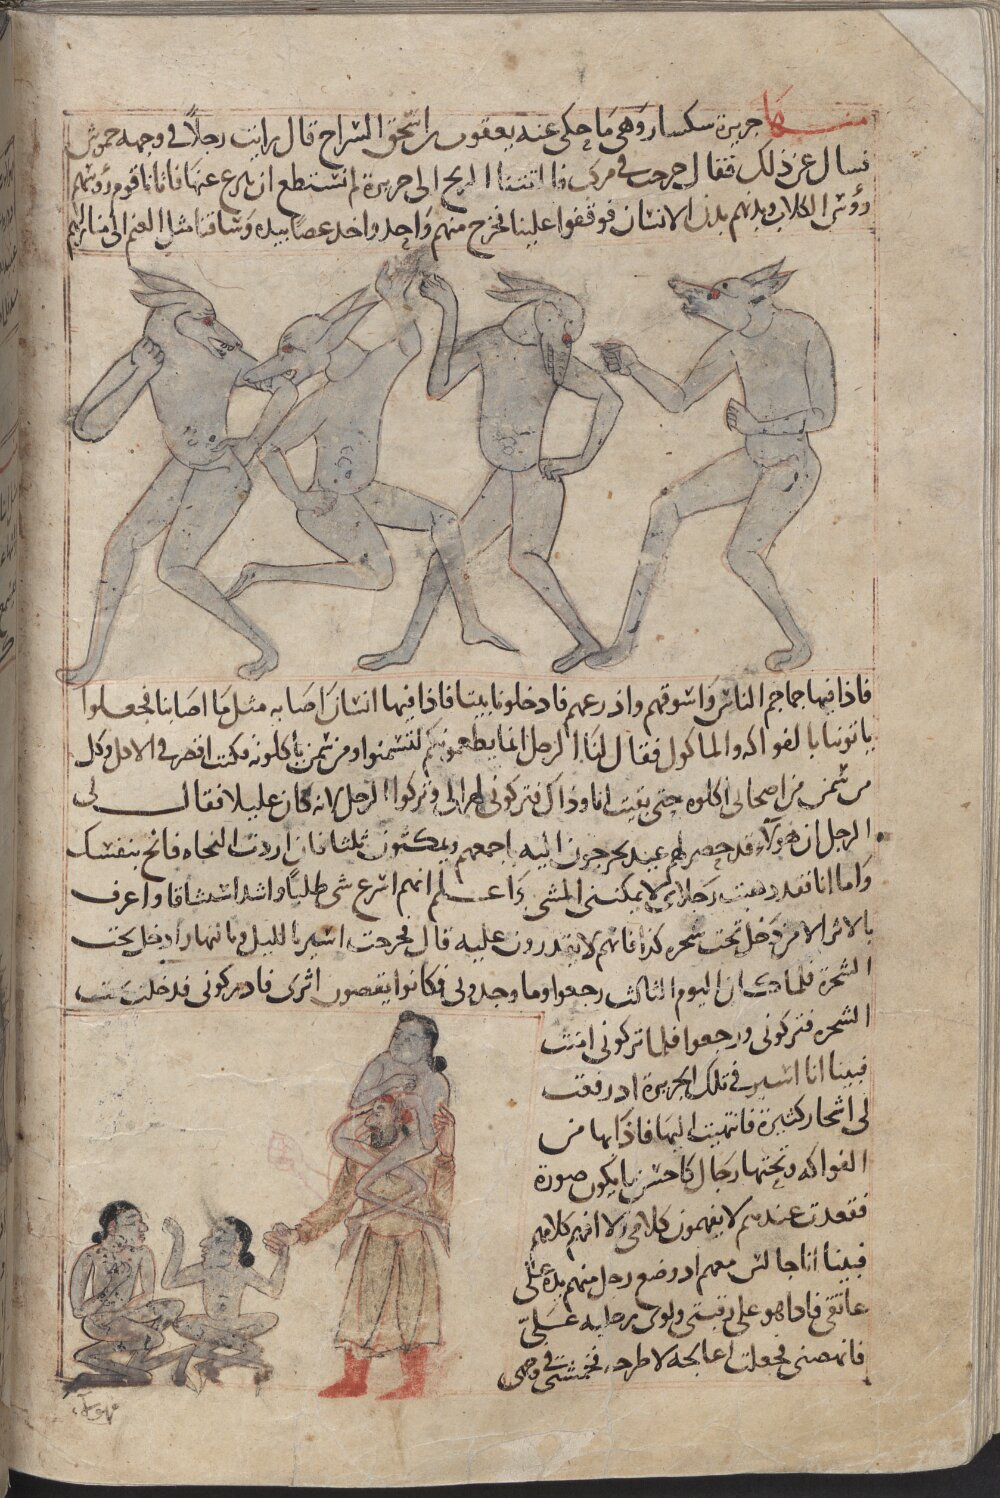 منها جزيرة سكسار وهي ما حكى عنه يعقوب بن اسحق السراج قال رايت رجلاً في وجهه خموش
فسال عن ذلك فقال خرجت في مركب فالقتنا الريح الى جزيرة لم نستطع ان نبرح عنها فاتانا قوم رؤسهم
رؤس الكلاب وبدنهم بدن الانسان فوقفوا علينا فخرج منهم واحد واخذ عصا بيده وساقنا مثل الغنم الى منازلهم
فاذا فيها جماجم الناس واسوقهم واذرعهم فادخلونا بيتا فاذا فيها انسان اصابه مثل ما اصابنا فجعلوا
ياتوننا بالفواكه والماكول فقال لنا الرجل انما يطعمونكم لتسمنوا ومن سمن ياكلونه فكنت اقصر في الاكل وكل
من سمن من اصحابي اكلوه حتى بقيت انا وذاك فتركوني لهزالي وتركوا الرجل لانه كان عليلا فقال لي
الرجل ان هولآء قد حضر لهم عيد يخرجون اليه اجمعهم ويمكثون ثلثا فان اردت النجاه فانج بنفسك
واما انا فقد ذهبت رجلاي لا يمكنني المشي واعلم انهم اسرع شي طلبا واشد استنشاقا واعرف
بالاثر الا من دخل تحت شجره كذا فانهم لا يقدرون عليه قال فخرجت اسير بالليل وبالنهار ادخل تحت
الشجرة فلما كان اليوم الثالث رجعوا وما وجدوني فكانوا يقصون اثري فادركوني قد دخلت تحت
الشجره فتركوني ورجعوا فلما تركوني امنت
فبينا انا اسير في تلك الجزيرة اذ رفعت
لي اشجار كثيرة فانتهيت اليها فاذا بها من
الفواكه وتحتها رجال كاحسن ما يكون صورة
فقعدت عندهم لا يفهمون كلامي ولا افهم كلامهم
فبينا انا جالس معهم اذ وضع رجل منهم يده على
عاتقي فاذا هو على رقبتي ولوى برجليه علىّ
فانهضني فجعلت اعالجه لاطرحه فخمشني في وجهي